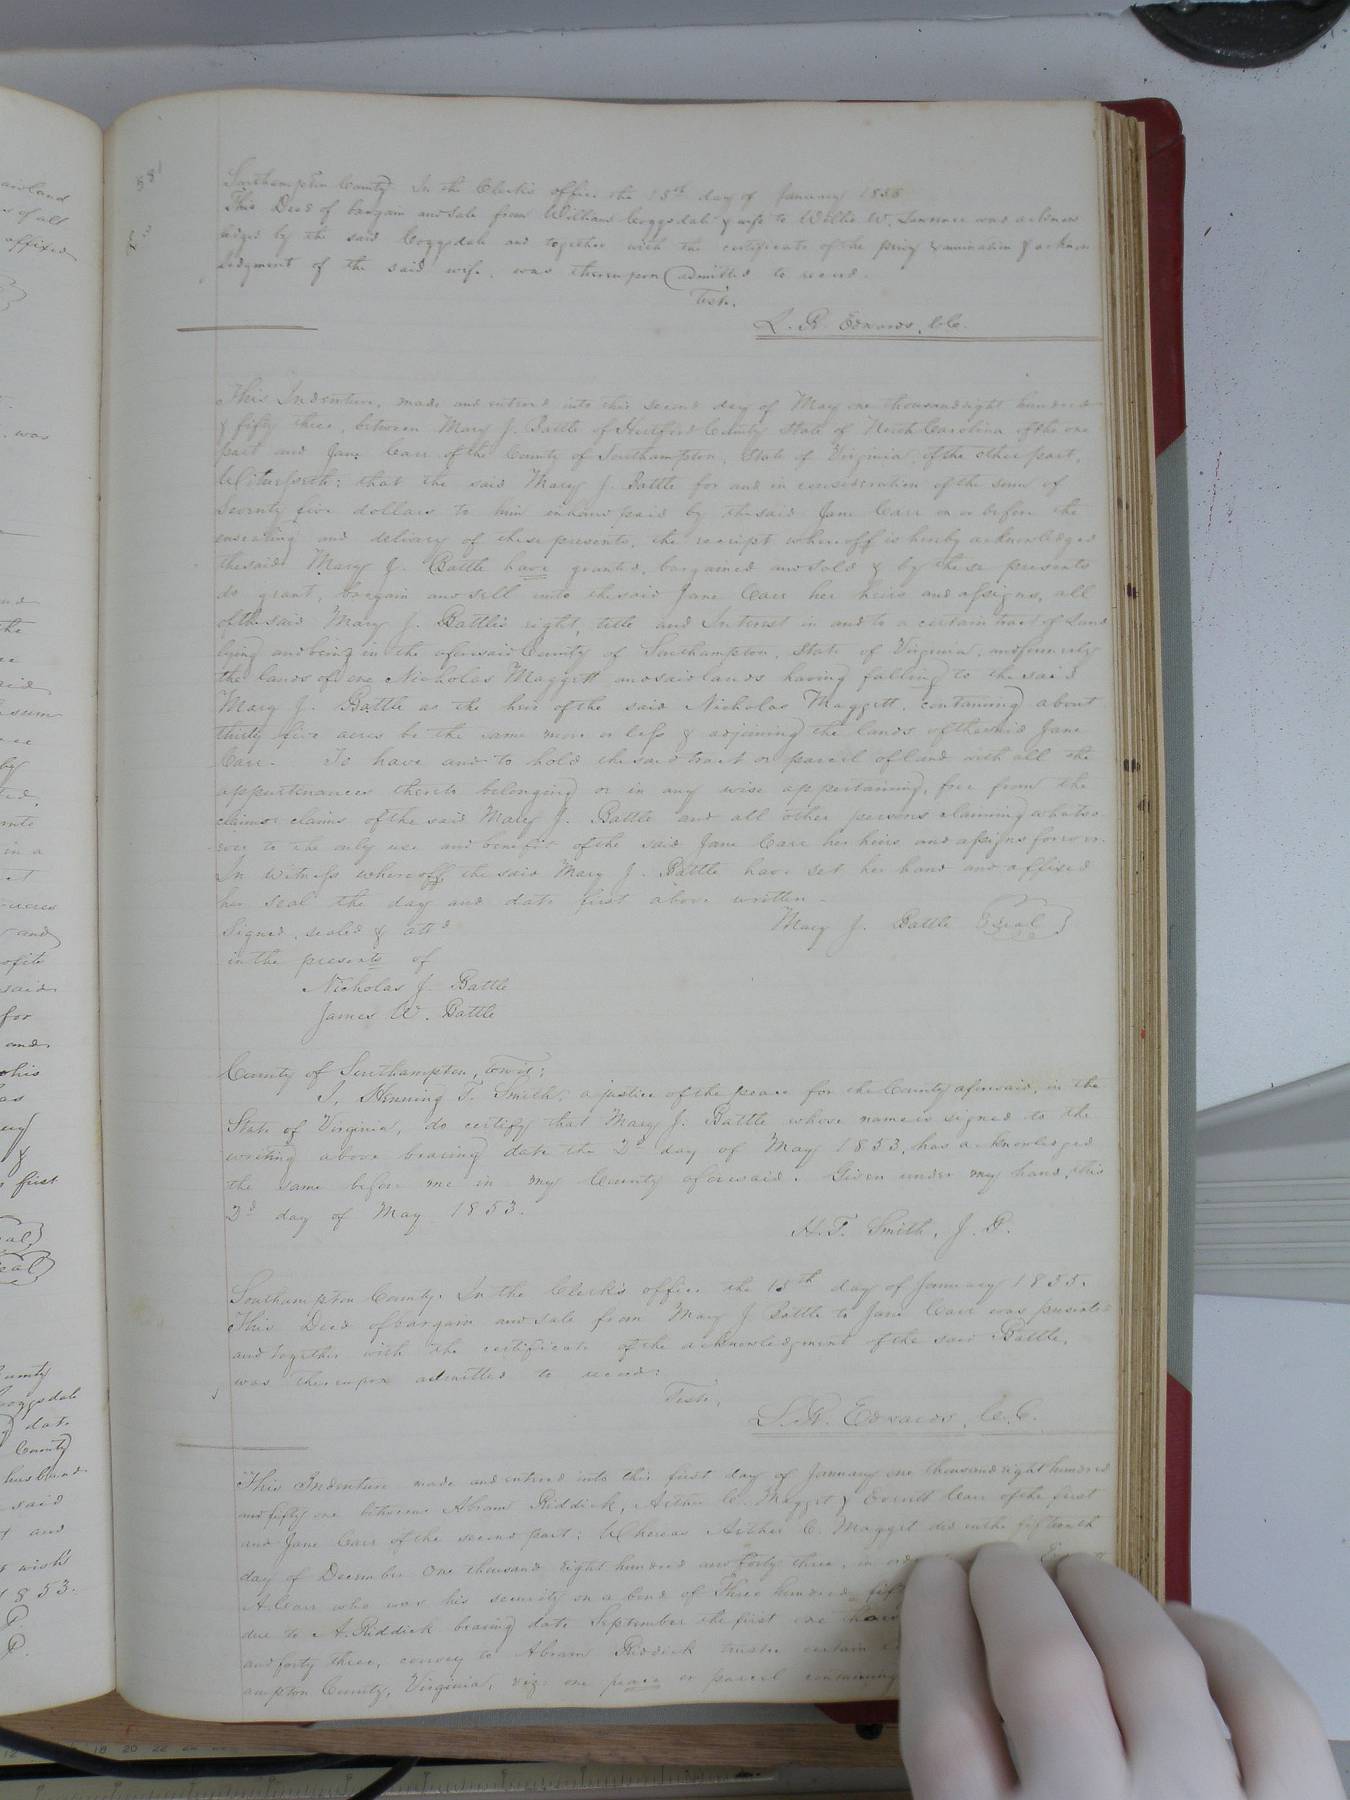 581
Southampton County. In the Clerk's office the 15th day of January 1855
This Deed of bargain and sale from William Coggsdale & wife to Willie W. Lawrence was acknow
ledged by the said Coggsdale and together with the certificate of the privy examination & ackno
ledgment of the said wife, was thereupon admitted to record.
Teste,
L. R. Edwards, C. C.
This Indenture, made and entered into this second day of May one thousand eight hundred
& fifty three, between Mary J. Battle of Hertford County State of North Carolina of the one
part and Jane Carr of the County of Southampton, State of Virginia, of the other part,
Witnesseth: that the said Mary J. Battle for and in consideration of the sum of
Seventy five dollars to him in hand paid by the said Jane Carr on or before the
ensealing and delivery of these presents, the receipt whereoff is hereby acknowledged
the said Mary J. Battle have granted, bargained and sold & by these presents
do grant, bargain and sell unto the said Jane Carr her heirs and assigns, all
of the said Mary J. Battle's right, title and Interest in and to a certain tract of Land
lying and being in the aforesaid County of Southampton, State of Virginia, and formerly
the lands of one Nicholas Maggett and said lands having falling to the said
Mary J. Battle as the heir of the said Nicholas Maggett, containing about
thirty five acres be the same more or less & adjoining the lands of the said Jane
Carr. To have and to hold the said tract or parcel of land with all the
appurtenances thereto belonging or in any wise appertaining, free from the
claims of the said Mary J. Battle and all other persons claiming whatso-
ever to the only use and benefit of the said Jane Carr her heirs and assigns forever.
In witness whereoff the said Mary J. Battle have set her hand and affixed
her seal the day and date first above written.
Signed, sealed & attd Mary J. Battle Seal
in the presents of
Nicholas J. Battle
James W. Battle
County of Southampton, towit:
I, Henning T. Smith, a justice of the peace for the County aforesaid, in the
State of Virginia, do certify that Mary J. Battle whose name is signed to the
writing above bearing date the 2d day of May 1853, has acknowledged
the same before me in my County aforesaid. Given under my hand, this
2d day of May 1853.
H. T. Smith, J. P.
Southampton County. In the Clerk's office the 15th day of January 1855.
This Deed of bargain and sale from Mary J Battle to Jane Carr was presented
and together with the certificate of the acknowledgment of the said Battle,
was thereupon admitted to record:
Teste,
L. R. Edwards, C. C.
This Indenture made and entered into this first day of January one thousand eight hundred
and fifty one between Abram Riddick, Arthur C. Maggit & Everitt Carr of the first
and Jane Carr of the second part: Whereas Arthur C. Maggit did on the fifteenth
day of December One thousand Eight hundred and forty three, in
A. Carr who was his security on a bond of Three hundred
due to A. Riddick bearing date September the first one
and forty three, convey to Abram Riddick trustee certain
ampton County, Virginia, viz: one peace or parcel containing